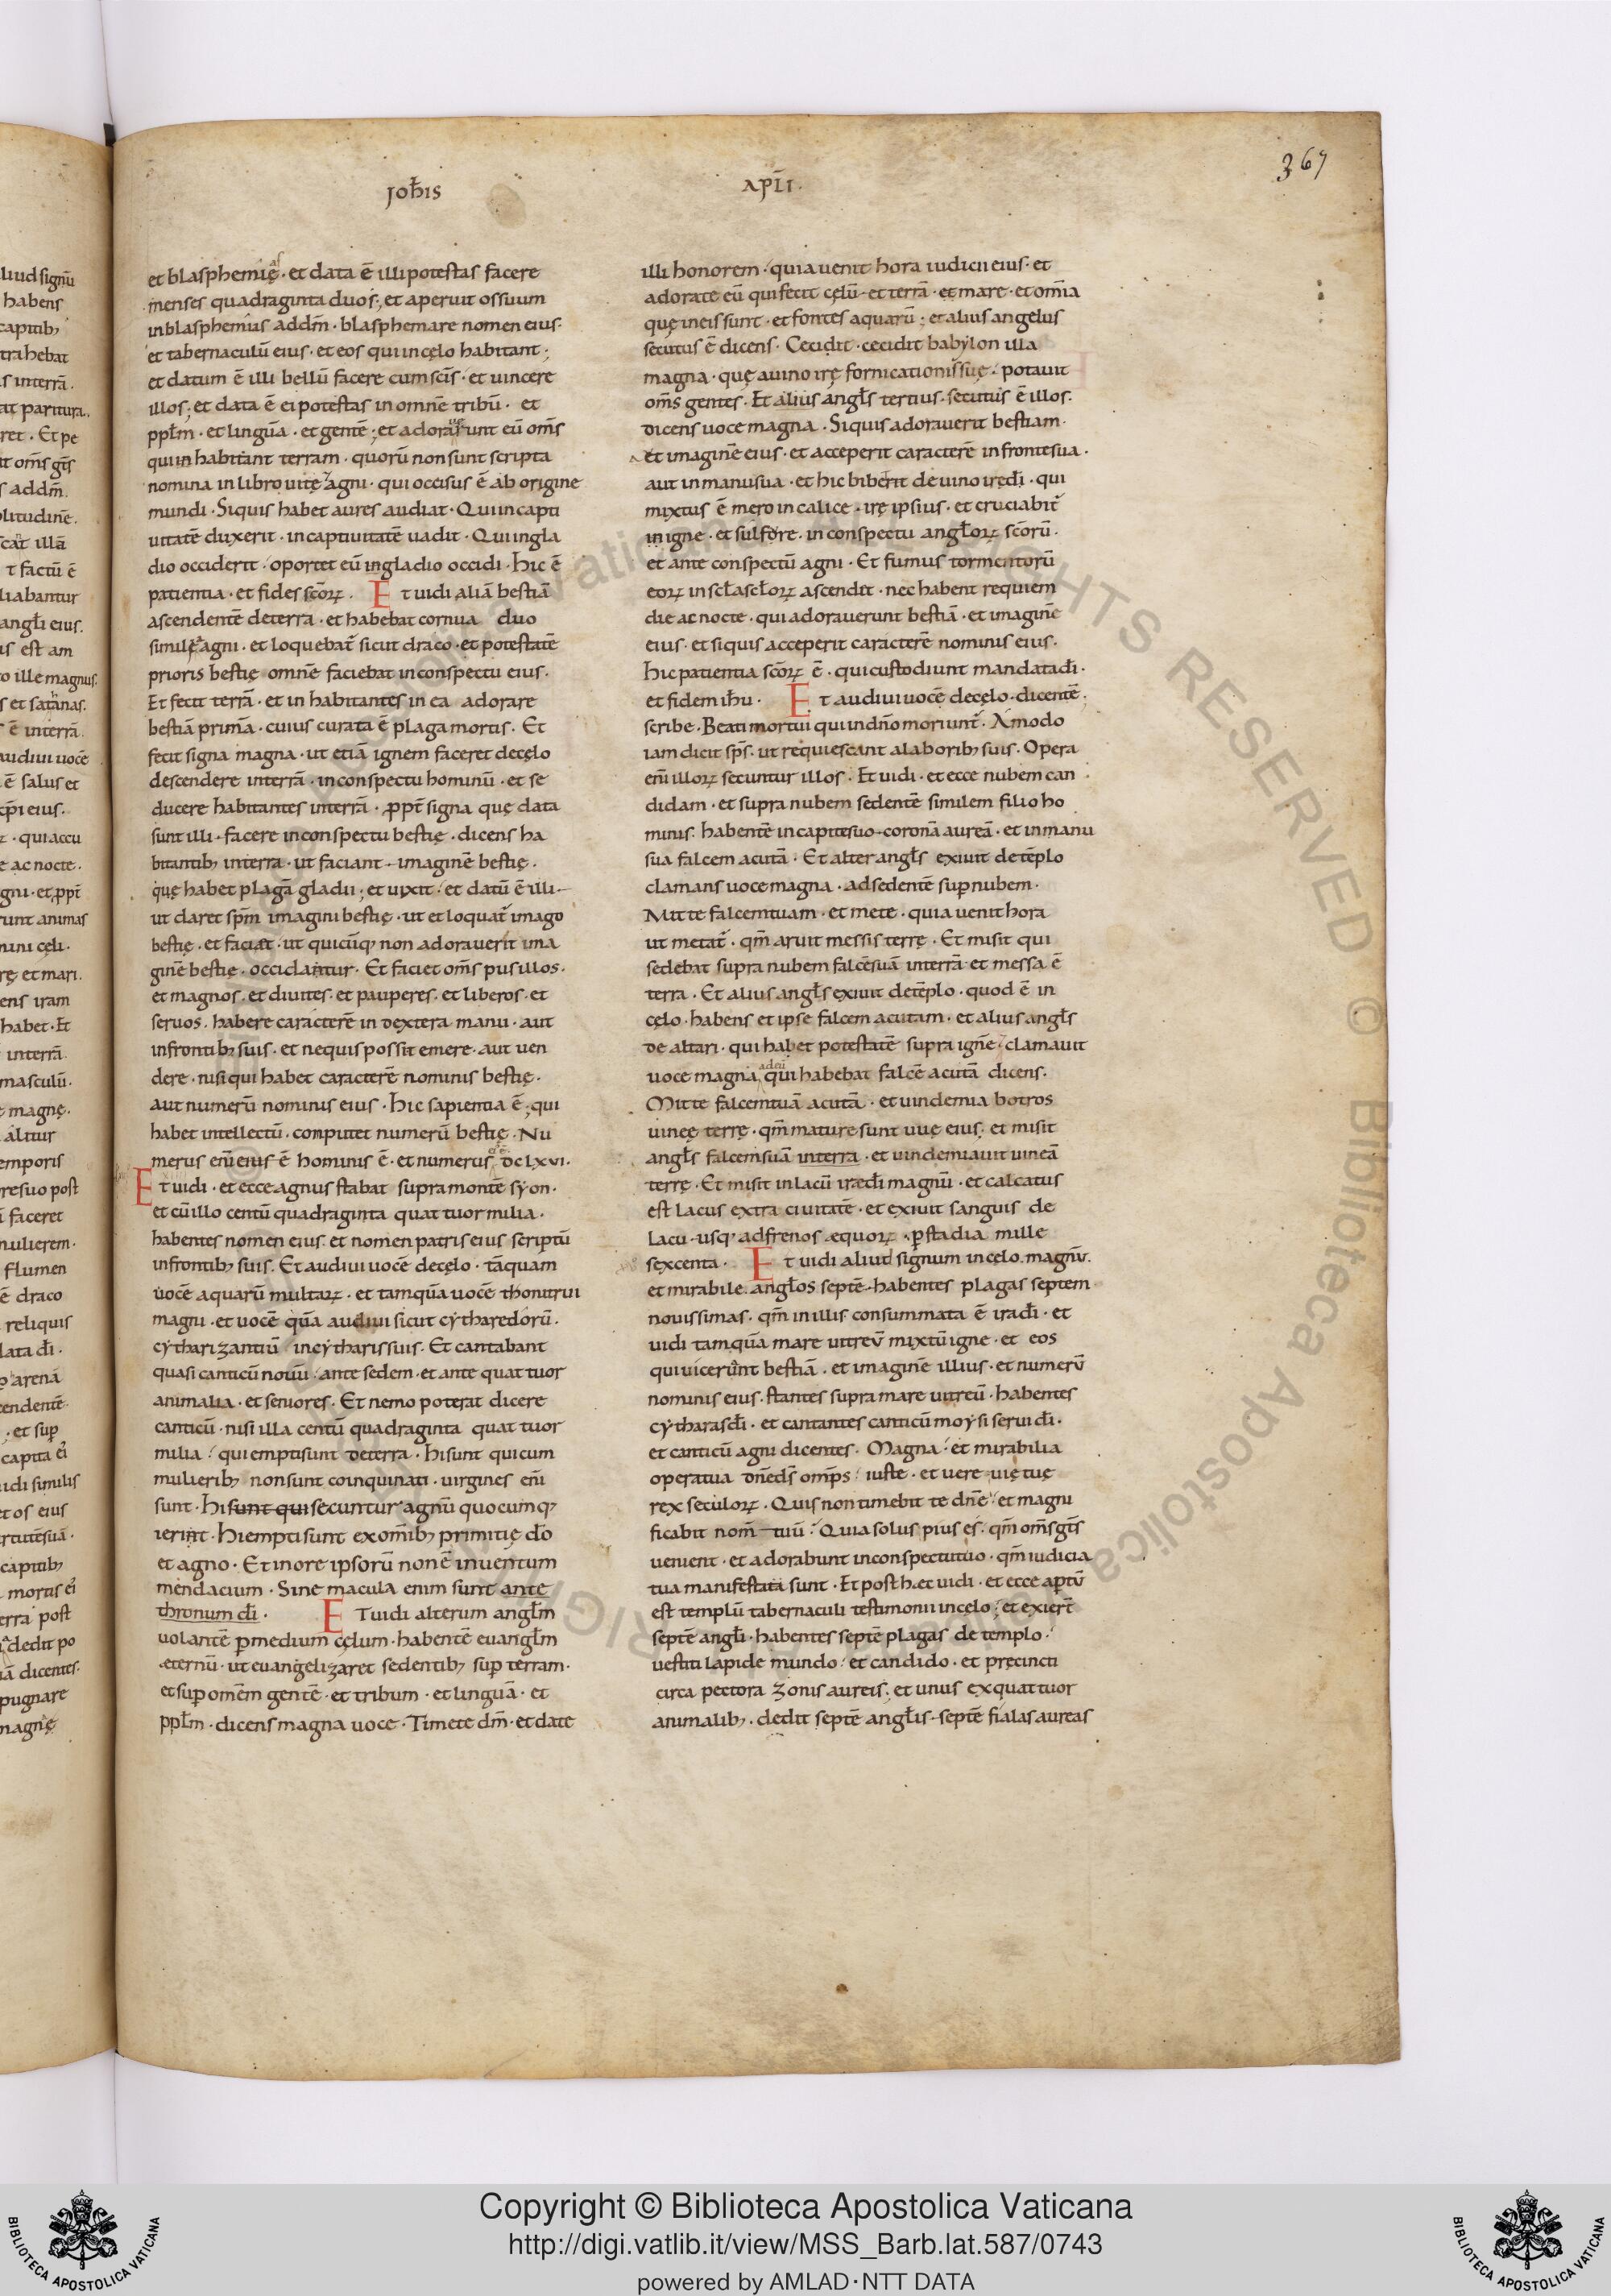 367
joħis
apłi·
et blasphemię· et data ē illi potestas facere
menses quadraginta duos; et aperuit os suum
in blasphemias ad dm̄· blasphemare nomen eius·
et tabernaculū eius· et eos qui in cęlo habitant;
et datum ē illi bellū facere cum scīs· et uincere
illos; et data ē ei potestas in omnē tribū· et
pplm̄· et linguā· et gentē; et adorarunt eū oms̄
qui inhabitant terram· quorū non sunt scripta
nomina in libro uitę agni· qui occisus ē ab origine
mundi· Siquis habet aures audiat· Qui in capti
uitatē duxerit· in captiuitatē uadit· Qui in gla
dio occiderit· oportet eū in gladio occidi· Hic ē
patientia· et fides scōrꝝ· Et uidi aliā bestiā
ascendentē de terra· et habebat cornua duo
similę agni· et loquebat̄ sicut draco· et potestatē
prioris bestię omnē faciebat in conspectu eius·
Et fecit terrā· et inhabitantes in ea adorare
bestiā primā· cuius curata ē plaga mortis· Et
fecit signa magna· ut etiā ignem faceret de cęlo
descendere in terrā· in conspectu hominū· et se
ducere habitantes in terrā· ꝓpt̄ signa quę data
sunt illi· facere in conspectu bestię· dicens ha
bitantibꝫ in terra· ut faciant imaginē bestię·
quę habet plagā gladii; et uixit· et datū ē illi
ut daret spm̄ imagini bestię· ut et loquat̄ imago
bestię· et faciat· ut quicūqꝫ non adorauerit ima
ginē bestię· occidantur· Et faciet oms̄ pusillos·
et magnos· et diuites· et pauperes· et liberos· et
seruos· habere caracterē in dextera manu· aut
in frontibꝫ suis· et nequis possit emere· aut uen
dere· nisi qui habet caracterē nominis bestię·
aut numerū nominis eius· Hic sapientia ē; qui
habet intellectū· conputet numerū bestię· Nu
merus enī eius ē hominis ē· et numerus dclxvi·
Et uidi· et ecce agnus stabat supra montē syon·
et cū illo centū quadraginta quattuor milia·
habentes nomen eius· et nomen patris eius scriptū
in frontibꝫ suis· Et audiui uocē de cęlo· tāquam
uocē aquarū multarꝝ· et tamquā uocē thonitrui
magni· et uocē quā audiui sicut cytharedorū·
cytharizantiū in cytharis suis· Et cantabant
quasi canticū nouū· ante sedem· et ante quattuor
animalia· et seniores· Et nemo poterat dicere
canticū· nisi illa centū quadraginta quattuor
milia· qui empti sunt de terra· Hi sunt qui cum
mulieribꝫ non sunt coinquinati· uirgines enī
sunt· Hi sunt qui secuntur agnū quocumqꝫ
ierint· Hi empti sunt ex omībꝫ primitię dō
et agno· Et in ore ipsorū non ē inuentum
mendacium· Sine macula enim sunt ante
thronum dī· Et uidi alterum anglm̄
uolantē ꝑ medium cęlum· habentē euanglm̄
æternū· ut euangelizaret sedentibꝫ suꝑ terram·
et suꝑ omēm gentē· et tribum· et linguā· et
pplm̄· dicens magna uoce· Timete dm̄· et date
illi honorem· quia uenit hora iudicii eius· et
adorate eū qui fecit cęlū· et terrā· et mare· et omīa
quę in eis sunt· et fontes aquarū; et alius angelus
secutus ē dicens· Cecidit· cecidit babylon illa
magna· quę a uino irę fornicationis suę· potauit
oms̄ gentes· Et alius angłs tertius· secutus ē illos·
dicens uoce magna· Siquis adorauerit bestiam·
et imaginē eius· et acceperit caracterē in fronte sua·
aut in manu sua· et hic biberit de uino irę dī· qui
mixtus ē mero in calice· irę ipsius· et cruciabit̄
in igne· et sulfore· in conspectu angłorꝝ scōrū·
et ante conspectū agni· Et fumus tormentorū
eorꝝ in scła scłorꝝ ascendit· nec habent requiem
die ac nocte· qui adorauerunt bestiā· et imaginē
eius· et siquis acceperit caracterē nominis eius·
Hic patientia scōrꝝ ē· qui custodiunt mandata dī·
et fidem ihu· Et audiui uocē de cęlo· dicentē;
scribe· Beati mortui qui in dnō moriunt̄· Amodo
iam dicit sps̄· ut requiescant a laboribꝫ suis· Opera
enī illorꝝ secuntur illos· Et uidi· et ecce nubem can
didam· et supra nubem sedentē similem filio ho
minis· habentē in capite suo· coronā aureā· et in manu
sua falcem acutā· Et alter angłs exiuit de tēplo
clamans uoce magna· ad sedentē suꝑ nubem·
Mitte falcem tuam· et mete· quia uenit hora
ut metat̄· qm̄ aruit messis terrę· Et misit qui
sedebat supra nubem falcē suā in terrā· et messa ē
terra· Et alius angłs exiuit de tēplo· quod ē in
cęlo· habens et ipse falcem acutam· et alius angłs
de altari· qui habet potestatē supra ignē· clamauit
uoce magna qui habebat falcē acutā dicens·
Mitte falcem tuā acutā· et uindemia botros
uineę terrę· qm̄ mature sunt uuę eius· et misit
angłs falcem suā in terra· et uindemiauit uineā
terrę· Et misit in lacū iræ dī magnū· et calcatus
est lacus extra ciuitatē· et exiuit sanguis de
lacu· usqꝫ ad frenos æquorꝝ· ꝑ stadia mille
sexcenta· Et uidi aliud signum in cęlo magnū·
et mirabile· angłos septē· habentes plagas septem
nouissimas· qm̄ in illis consummata ē ira dī· et
uidi tamquā mare uitreū mixtū igne· et eos
qui uicerunt bestiā· et imaginē illius· et numerū
nominis eius· stantes supra mare uitreū· habentes
cytharas dī· et cantantes canticū moysi serui dī·
et canticū agni dicentes· Magna· et mirabilia
opera tua dnē ds̄ omps̄· iuste· et uere uię tuę
rex seculorꝝ· Quis non timebit te dnē· et magni
ficabit nom̄ tuū· Quia solus pius es· qm̄ oms̄ gts̄
uenient· et adorabunt in conspectu tuo· qm̄ iudicia
tua manifestata sunt· Et post hæc uidi· et ecce aꝑtū
est templū tabernaculi testimonii in cęlo; et exiert̄
septē angłi· habentes septē plagas de templo·
uestiti lapide mundo· et candido· et pręcincti
circa pectora zonis aureis; et unus ex quattuor
animalibꝫ· dedit septē angłis· septē fialas aureas
Copyright © Biblioteca Apostolica Vaticana
http://digi.vatlib.it/view/MSS_Barb.lat.587/0743
powered by AMLAD·NTT DATA